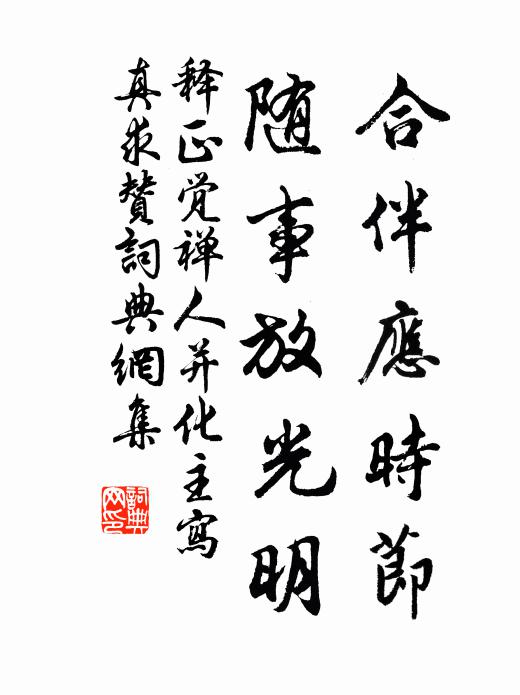 合伴應時節
随事放光明
释正觉禅人并化主寫
真求赞詞典網集
詞典网印